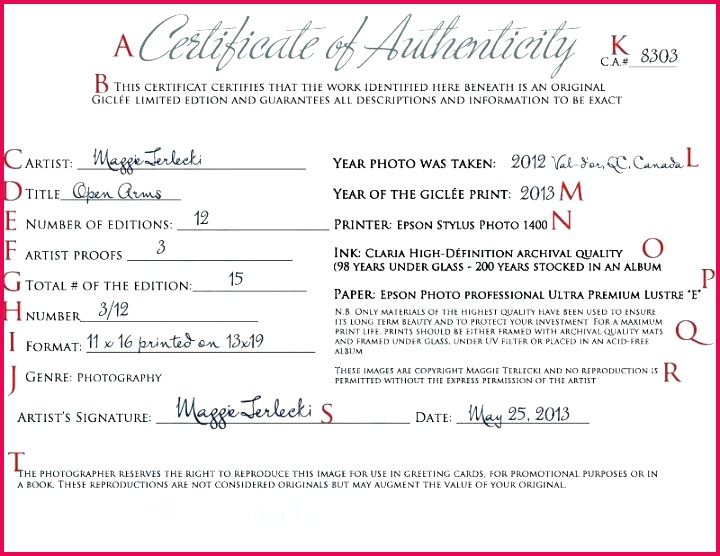 A Certificate of Authenticity K
C.A.# 8303
B This certificat certifies that the work identified here beneath is an original
Giclée limited edtion and guarantees all descriptions and information to be exact
C Artist: Maggie Terlecki
D Title Open Arms
E Number of editions: 12
F artist proofs 3
G Total # of the edition: 15
H number 3/12
I Format: 11 x 16 printed on 13x19
J Genre: Photography
Year photo was taken: 2012 Val-d'or, QC, Canada L
Year of the giclée print: 2013 M
Printer: Epson Stylus Photo 1400 N
Ink: Claria High-Définition archival quality O
(98 years under glass - 200 years stocked in an album
Paper: Epson Photo professional Ultra Premium Lustre "E" P
N.B. Only materials of the highest quality have been used to ensure
its long term beauty and to protect your investment For a maximum
print life, prints should be either framed with archival quality mats
and framed under glass, under UV filter or placed in an acid-free
album Q
These images are copyright Maggie Terlecki and no reproduction is
permitted without the express permission of the artist R
Artist's Signature: Maggie Terlecki S Date: May 25, 2013
T
The photographer reserves the right to reproduce this image for use in greeting cards, for promotional purposes or in
a book. These reproductions are not considered originals but may augment the value of your original.